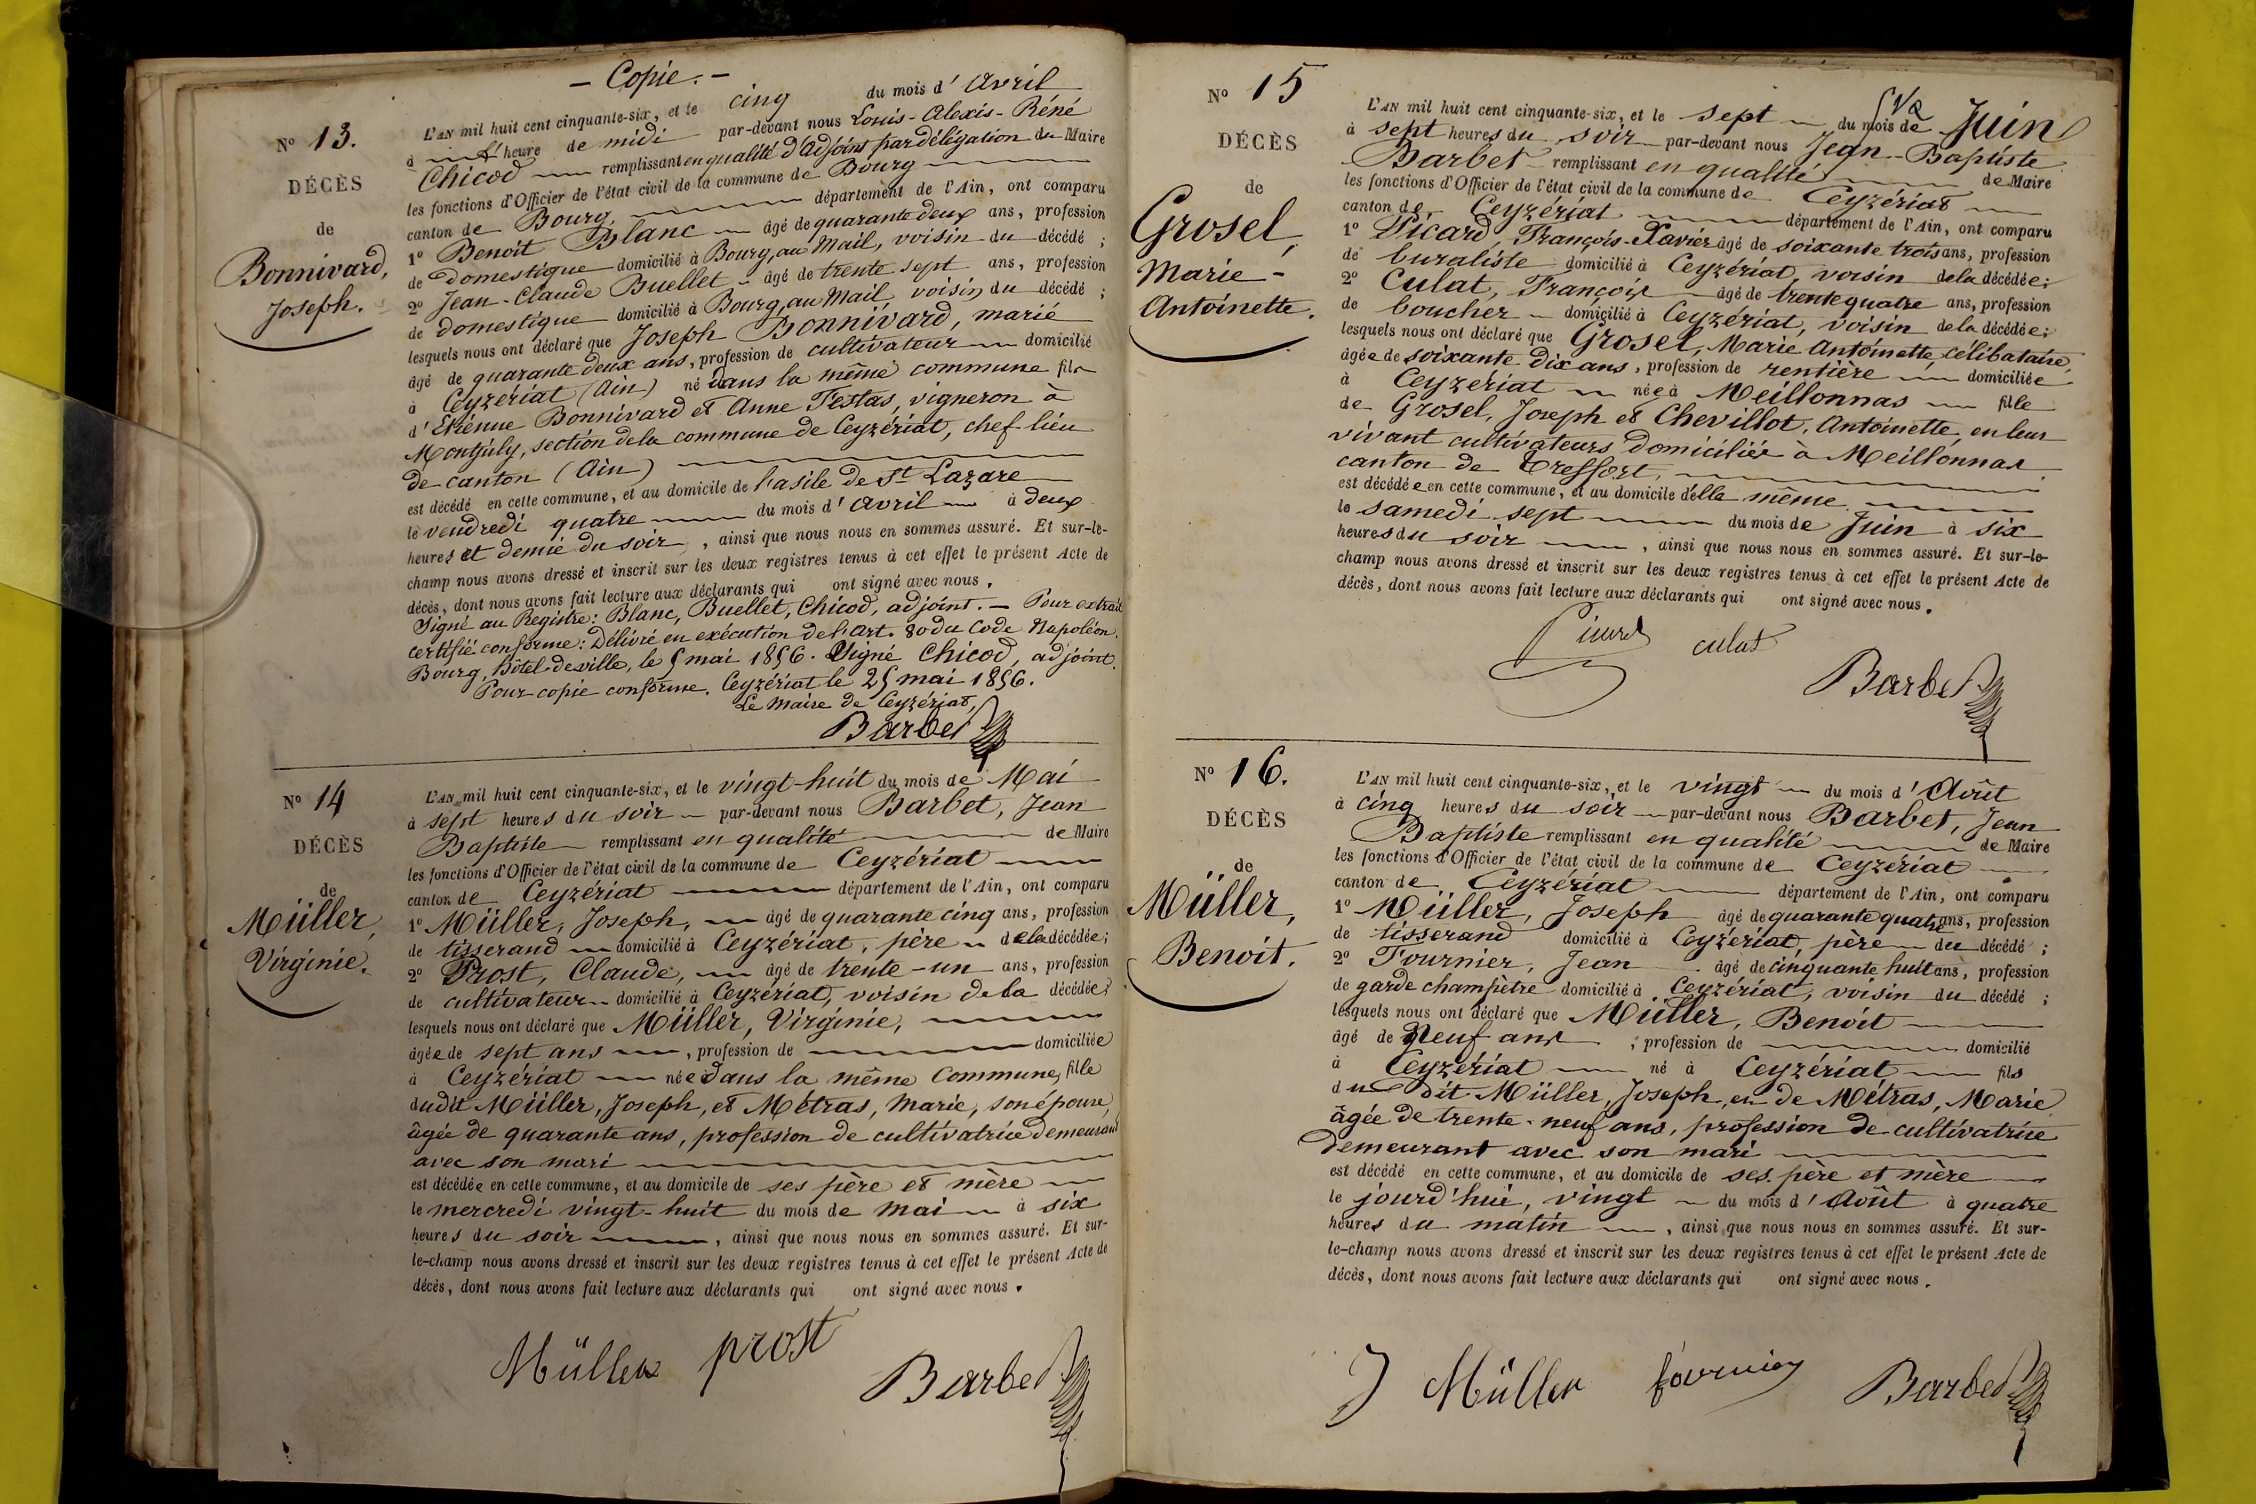 - Copie. -
N° 13.
DÉCÈS
de
Bonnivard,
Joseph.
L'AN mil huit cent cinquante-six, et le cinq du mois d'Avril
à l'heure de midi par-devant nous Louis-Alexis-Réné
Chicod remplissant en qualité d'adjoint par délégation du Maire
les fonctions d'Officier de l'état civil de la commune de Bourg
canton de Bourg, département de l'Ain, ont comparu
1° Benoit Blanc âgé de quarante deux ans, profession
de domestique domicilié à Bourg, au Mail, voisin du décédé ;
2° Jean-Claude Buellet âgé de trente sept ans, profession
de domestique domicilié à Bourg, au Mail, voisin du décédé ;
lesquels nous ont déclaré que Joseph Bonnivard, marié
âgé de quarante deux ans, profession de cultivateur domicilié
à Ceyzériat (Ain) né dans la même commune fils
d'Etiénne Bonnivard et Anne Testas, vigneron à
Montjuly, section de la commune de Ceyzériat, chef-lieu
de canton (Ain)
est décédé en cette commune, et au domicile de l'asile de St Lazare
le vendredi quatre du mois d'avril à deux
heures et demie du soir, ainsi que nous nous en sommes assuré. Et sur-le-
champ nous avons dressé et inscrit sur les deux registres tenus à cet effet le présent Acte de
décès, dont nous avons fait lecture aux déclarants qui ont signé avec nous.
Signé au Registre : Blanc, Buellet, Chicod, adjoint. - Pour extrait
certifié conforme : Délivré en exécution de l'art. 80 du Code Napoléon.
Bourg, hôtel de ville, le 5 mai 1856. Signé Chicod, adjoint.
Pour copie conforme. Ceyzériat le 25 mai 1856.
Le Maire de Ceyzériat,
Barbet
N° 14
DÉCÈS
de
Müller,
Virginie.
L'AN mil huit cent cinquante-six, et le vingt-huit du mois de Mai
à sept heures du soir par-devant nous Barbet, Jean
Baptiste remplissant en qualité de Maire
les fonctions d'Officier de l'état civil de la commune de Ceyzériat
canton de Ceyzériat département de l'Ain, ont comparu
1° Müller, Joseph, âgé de quarante cinq ans, profession
de tisserand domicilié à Ceyzériat, père de la décédée ;
2° Prost, Claude, âgé de trente-un ans, profession
de cultivateur domicilié à Ceyzériat, voisin de la décédée ;
lesquels nous ont déclaré que Müller, Virginie,
âgée de sept ans, profession de domiciliée
à Ceyzériat née dans la même Commune, fille
dudit Müller, Joseph, et Métras, Marie, son épouse,
âgée de quarante ans, profession de cultivatrice demeurant
avec son mari
est décédée en cette commune, et au domicile de ses père et mère
le mercredi vingt-huit du mois de mai à six
heures du soir, ainsi que nous nous en sommes assuré. Et sur-
le-champ nous avons dressé et inscrit sur les deux registres tenus à cet effet le présent Acte de
décès, dont nous avons fait lecture aux déclarants qui ont signé avec nous.
Müller prost
Barbet
N° 15
DÉCÈS
de
Grosel,
Marie-
Antoinette.
L'AN mil huit cent cinquante-six, et le sept du mois de Juin
à sept heures du soir par-devant nous Jean-Baptiste
Barbet remplissant en qualité de Maire
les fonctions d'Officier de l'état civil de la commune de Ceyzériat
canton de Ceyzériat département de l'Ain, ont comparu
1° Picard, François-Xavier âgé de soixante trois ans, profession
de buraliste domicilié à Ceyzériat, voisin de la décédée ;
2° Culat, François âgé de trente quatre ans, profession
de boucher domicilié à Ceyzériat, voisin de la décédée ;
lesquels nous ont déclaré que Grosel, Marie Antoinette, célibataire,
âgée de soixante dix ans, profession de rentière domiciliée
à Ceyzériat née à Meillonnas fille
de Grosel, Joseph et Chevillot, Antoinette, en leur
vivant cultivateurs domiciliés à Meillonnas
canton de Treffort,
est décédée en cette commune, et au domicile d'elle même
le samedi sept du mois de Juin à six
heures du soir, ainsi que nous nous en sommes assuré. Et sur-le-
champ nous avons dressé et inscrit sur les deux registres tenus à cet effet le présent Acte de
décès, dont nous avons fait lecture aux déclarants qui ont signé avec nous.
Picard culat
Barbet
N° 16.
DÉCÈS
de
Müller,
Benoit.
L'AN mil huit cent cinquante-six, et le vingt du mois d'Août
à cinq heures du soir par-devant nous Barbet, Jean
Baptiste remplissant en qualité de Maire
les fonctions d'Officier de l'état civil de la commune de Ceyzériat
canton de Ceyzériat département de l'Ain, ont comparu
1° Müller, Joseph âgé de quarante quatre ans, profession
de tisserand domicilié à Ceyzériat, père du décédé ;
2° Fournier, Jean âgé de cinquante huit ans, profession
de garde champêtre domicilié à Ceyzériat, voisin du décédé ;
lesquels nous ont déclaré que Müller, Benoit
âgé de Neuf ans ; profession de domicilié
à Ceyzériat né à Ceyzériat fils
du dit Müller, Joseph, et de Métras, Marie
âgée de trente-neuf ans, profession de cultivatrice
demeurant avec son mari
est décédé en cette commune, et au domicile de ses père et mère
le jourd'hui, vingt du mois d'Août à quatre
heures du matin, ainsi que nous nous en sommes assuré. Et sur-
le-champ nous avons dressé et inscrit sur les deux registres tenus à cet effet le présent Acte de
décès, dont nous avons fait lecture aux déclarants qui ont signé avec nous.
J Müller fournier Barbet